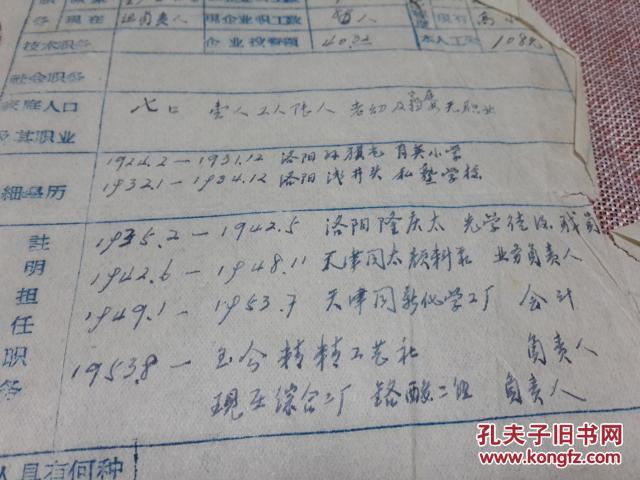 务 现在 组负责人 现企业职工数 人 现有 高小
技术职务 企业投资额 403元 本人工资 108元
社会职务
家庭人口 七口 壹人工人 老幼及 无职业
及其职业
1924.2－1931.12 洛阳 育英小学
细学历 1932.1－1934.12 洛阳 浅井头 私塾学校
註 1935.2－1942.5 洛阳隆庆太 先学徒后职员
明 1942.6－1948.11 天津同太颜料庄 业务负责人
担
任 1949.1－1953.7 天津同新化学工厂 会计
职 1953.8－ 玉今精精工艺社 负责人
务 现在综合工厂 铬酸二组 负责人
人具有何种
孔夫子旧书网
www.kongfz.com